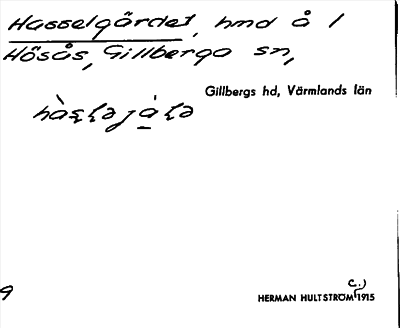 Hasselgärdet, hmd å 1
Hösås, Gillberga sn,
Gillbergs hd, Värmlands län
C.)
HERMAN HULTSTRÖM 1915
9